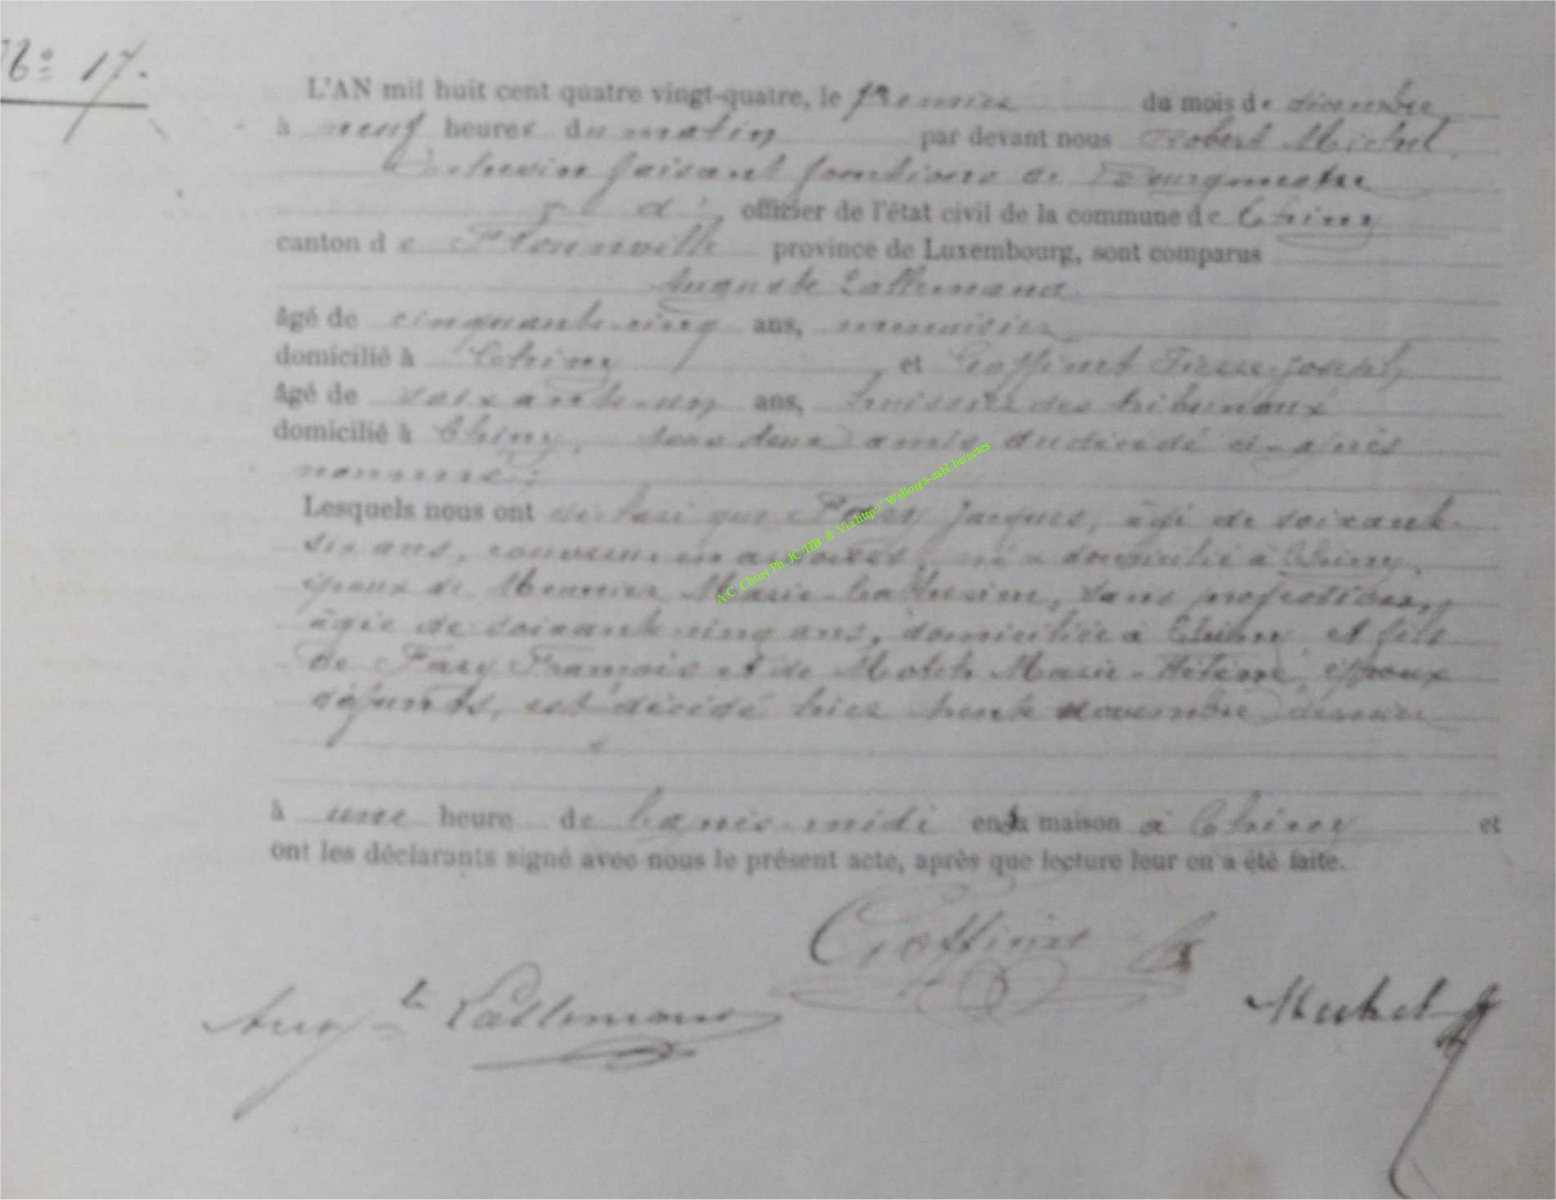 No 17.
L'AN mil huit cent quatre vingt-quatre, le premier du mois de décembre,
à neuf heures du matin par devant nous Robert Michel,
Echevin faisant fonctions de Bourgmestre
officier de l'état civil de la commune de Chiny
canton de Florenville province de Luxembourg, sont comparus
Auguste Lallemand
âgé de cinquante-cinq ans, menuisier
domicilié à Chiny et Goffinet Pierre-Joseph,
âgé de soixante-un ans, huissier des tribunaux
domicilié à Chiny, tous deux amis du décédé ci-après
nommé:
Lesquels nous ont déclaré que Jacques, âgé de soixante-
six ans, couvreur en ardoises, né & domicilié à Chiny,
époux de Meunier Marie-Catherine, sans profession,
âgée de soixante-cinq ans, domiciliée à Chiny et fils
de François et de Marie- époux
défunts, est décédé hier trente novembre dernier
à une heure de l'après-midi en sa maison à Chiny et
ont les déclarants signé avec nous le présent acte, après que lecture leur en a été faite.
Goffinet
Augte Lallemand
Michel